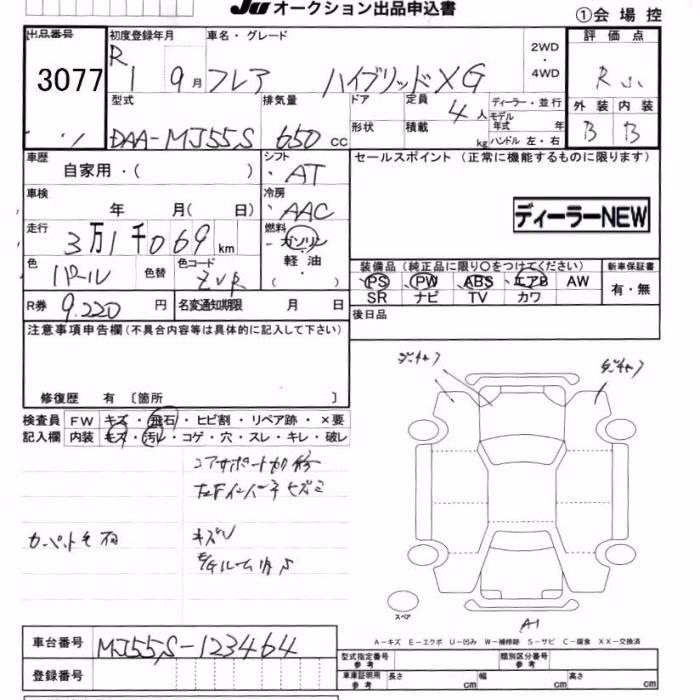 JU オークション出品申込書
①会場控
出品番号 3077
初度登録年月 R 1 9月
車名・グレード フレア ハイブリッドXG
2WD・4WD
評価点 R
外装 内装
B B
型式 DAA-MJ55S
排気量 650 cc
ドア
形状
定員 4人
積載 kg
ディーラー・並行
モデル年式 年
ハンドル 左・右
車歴 自家用・( )
シフト AT
セールスポイント (正常に機能するものに限ります)
車検 年 月( 日)
冷房 AAC
ディーラーNEW
走行 3万1千069km
燃料 ガソリン
軽油
( )
色 パール
色替
色コード ZVR
装備品 (純正品に限り○をつけてください)
新車保証書
PS PW ABS エアB AW
SR ナビ TV カワ
有・無
R券 9.220円
名変通知期限 月 日
後日品
注意事項申告欄(不具合内容等は具体的に記入して下さい)
修復歴 有〔箇所 〕
検査員 FW キズ・飛石・ヒビ割・リペア跡・×要
記入欄 内装 キズ・汚レ・コゲ・穴・スレ・キレ・破レ
コアサポート
キズ
スペア
A1
A-キズ E-エクボ U-凹み W-補修跡 S-サビ C-腐食 XX-交換済
車台番号 MJ55S-123464
登録番号
型式指定番号 参考
類別区分番号 参考
車庫証明用 参考 長さ cm 幅 cm 高さ cm